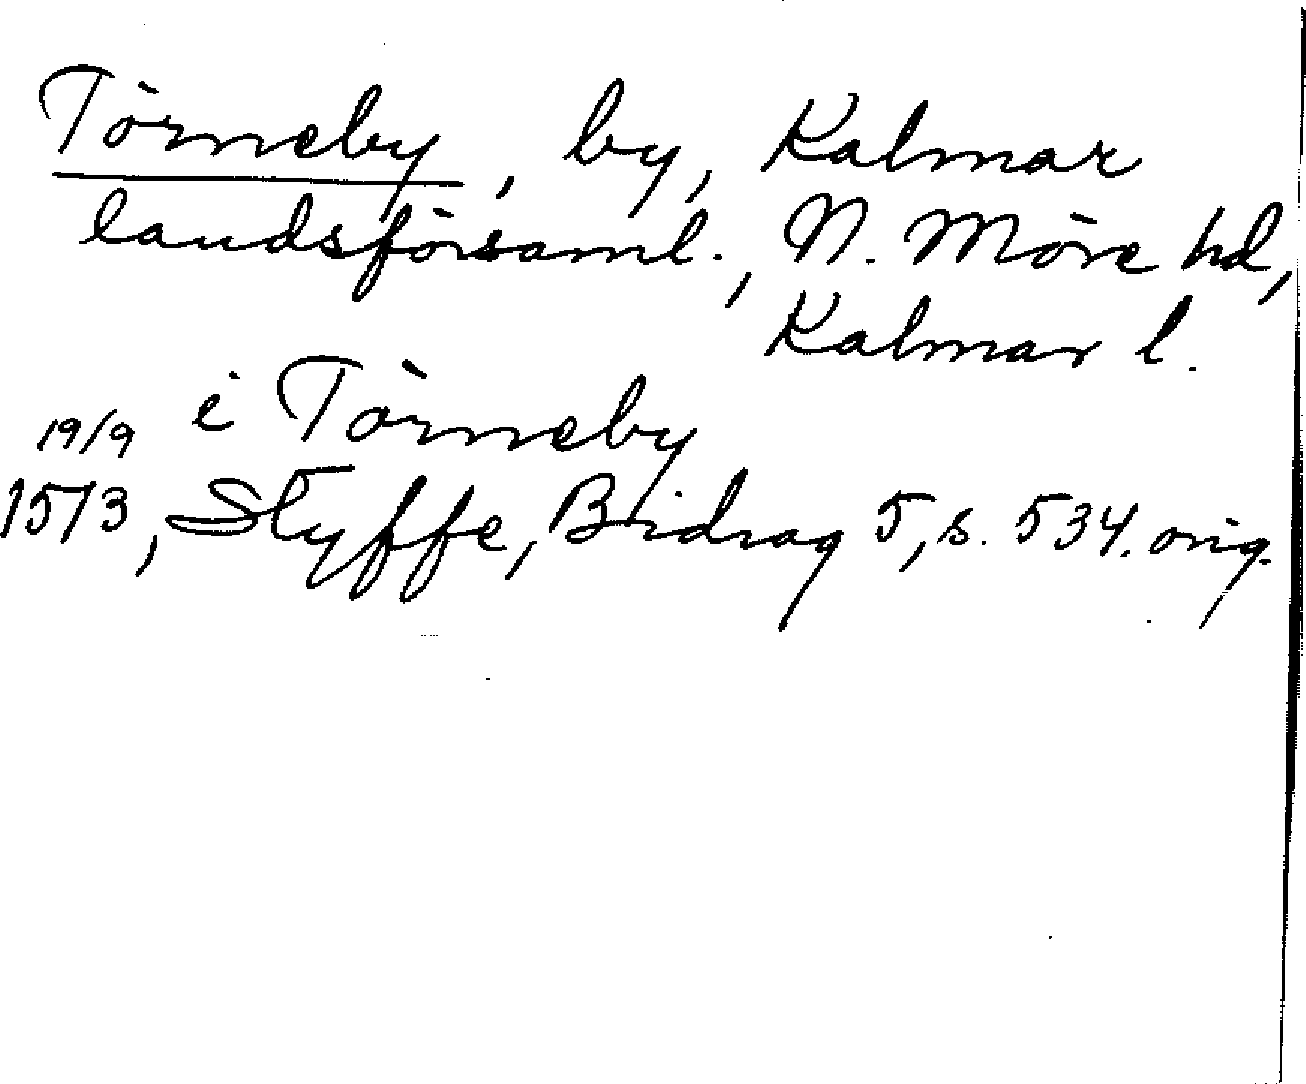 Törneby, by, Kalmar
landsförsaml., N. Möre hd,
Kalmar l.
i Törneby
19/9
1513, Styffe, Bidrag 5, s. 534. orig.